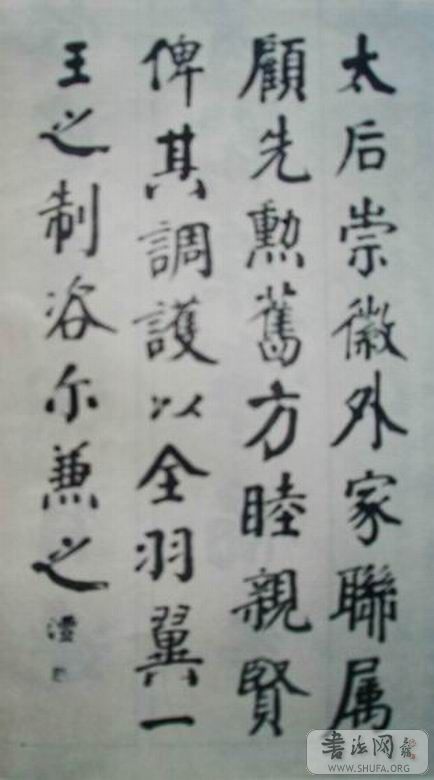 太后崇徽外家聯属
顧先勲舊方睦親賢
俾其調護以全羽翼一
王之制咨尔兼之
書法网
WWW.SHUFA.ORG